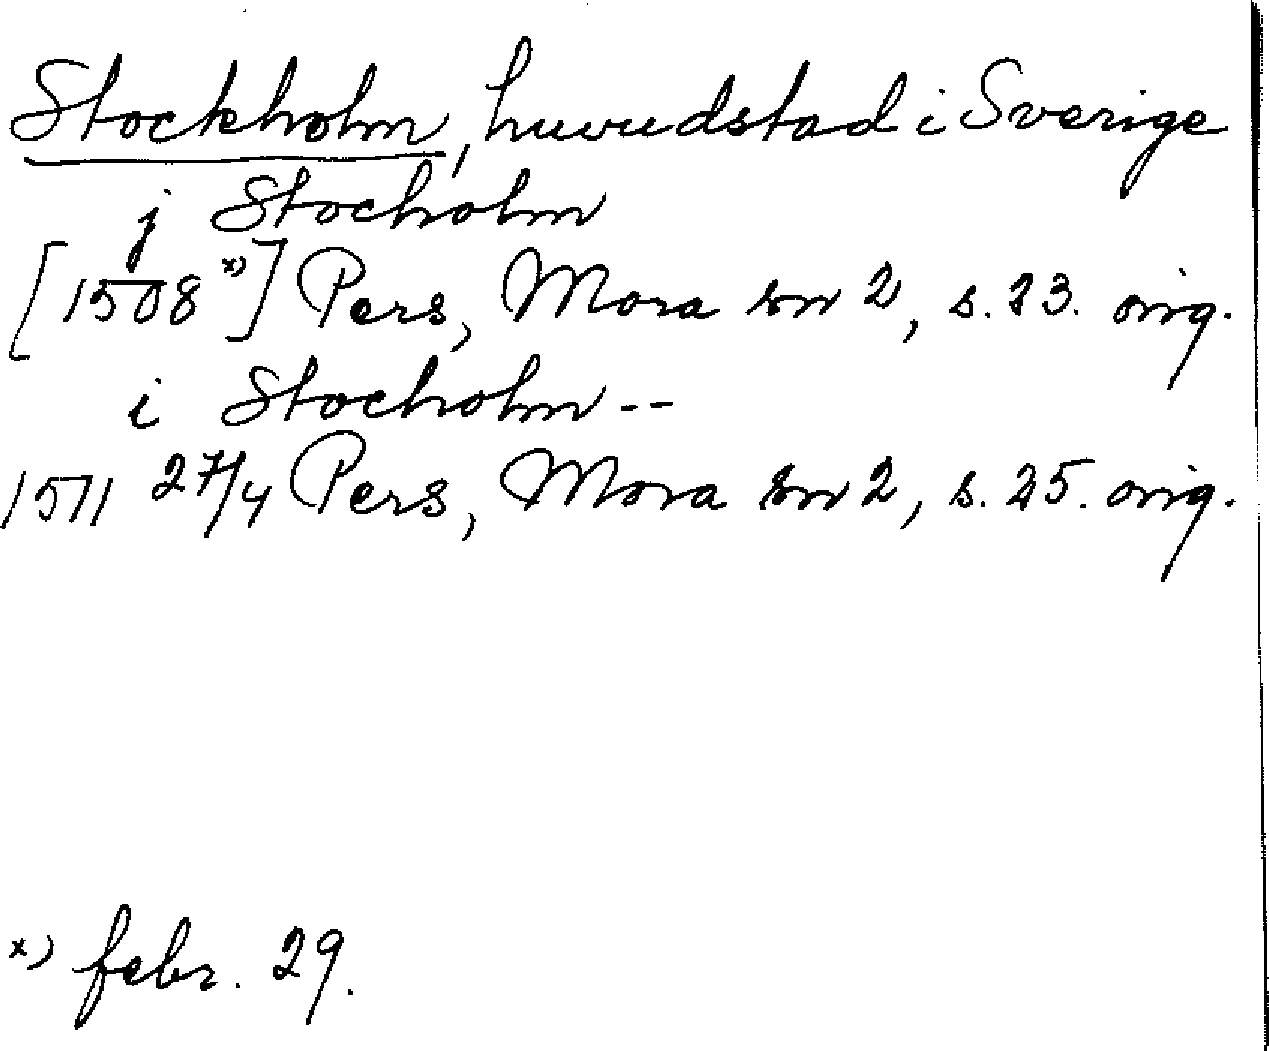 Stockholm, huvudstad i Sverige
j Stocholm
[1508 x)] Pers, Mora sn 2, s. 23. orig.
i Stocholm --
1511 27/4 Pers, Mora sn 2, s. 25. orig.
x) febr. 29.